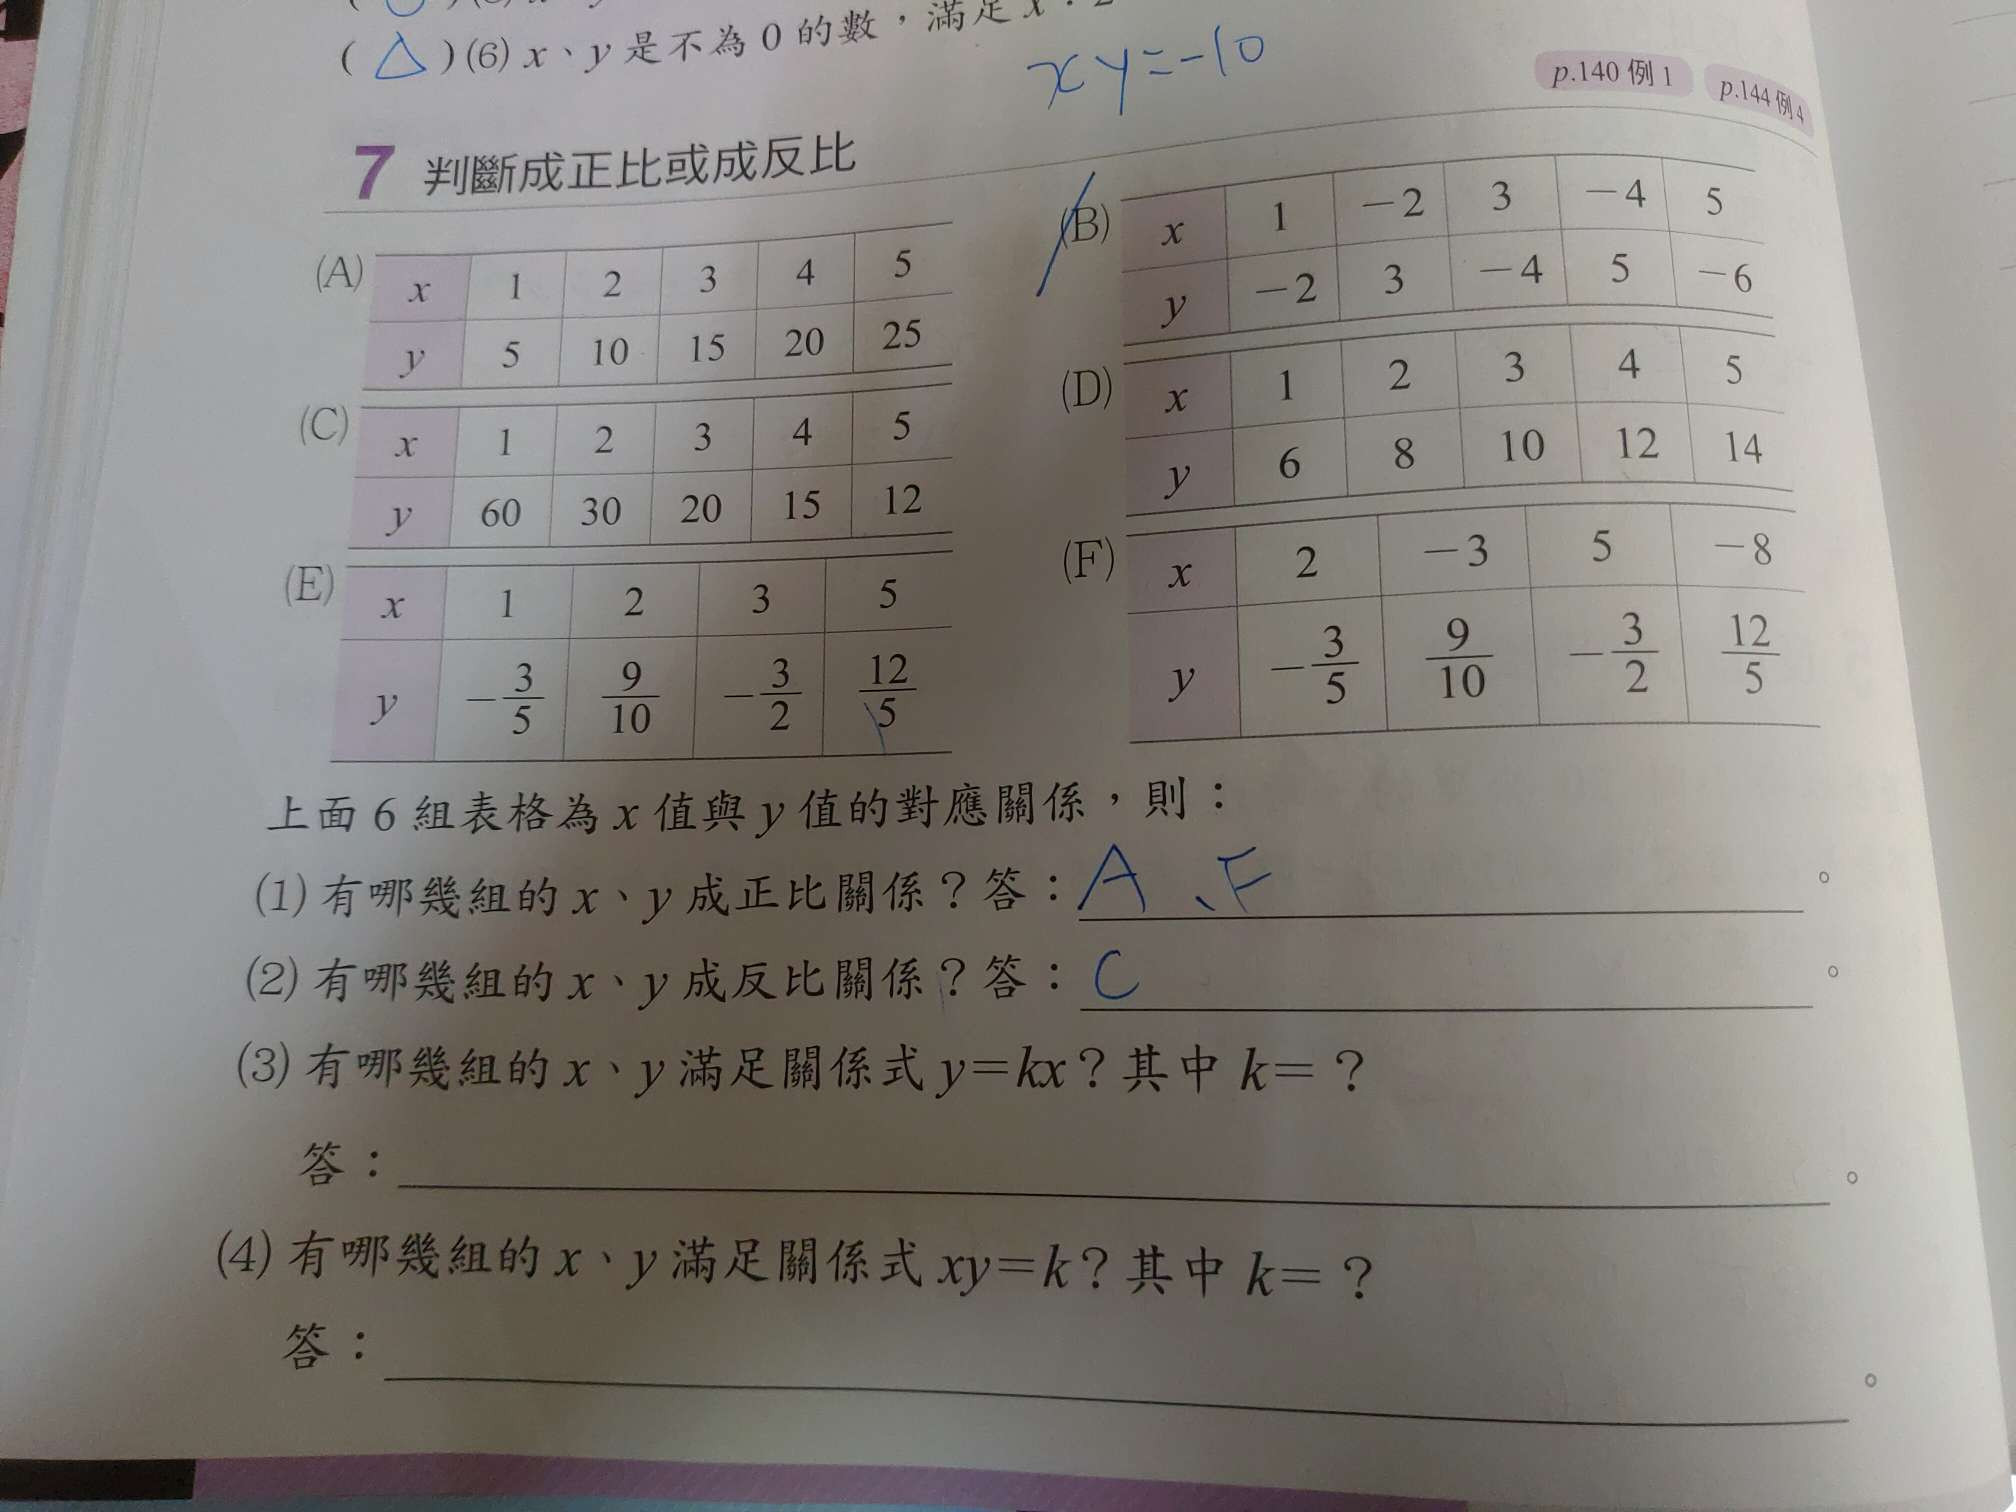 ( △ ) (6) x、y 是不為 0 的數，滿足 x：2
xy=-10
p.140 例 1 p.144 例 4
7 判斷成正比或成反比
(A) x 1 2 3 4 5
y 5 10 15 20 25
(B) x 1 －2 3 －4 5
y －2 3 －4 5 －6
(C) x 1 2 3 4 5
y 60 30 20 15 12
(D) x 1 2 3 4 5
y 6 8 10 12 14
(E) x 1 2 3 5
y －3/5 9/10 －3/2 12/5
(F) x 2 －3 5 －8
y －3/5 9/10 －3/2 12/5
上面 6 組表格為 x 值與 y 值的對應關係，則：
(1) 有哪幾組的 x、y 成正比關係？答：A、F。
(2) 有哪幾組的 x、y 成反比關係？答：C。
(3) 有哪幾組的 x、y 滿足關係式 y＝kx？其中 k＝？
答：。
(4) 有哪幾組的 x、y 滿足關係式 xy＝k？其中 k＝？
答：。